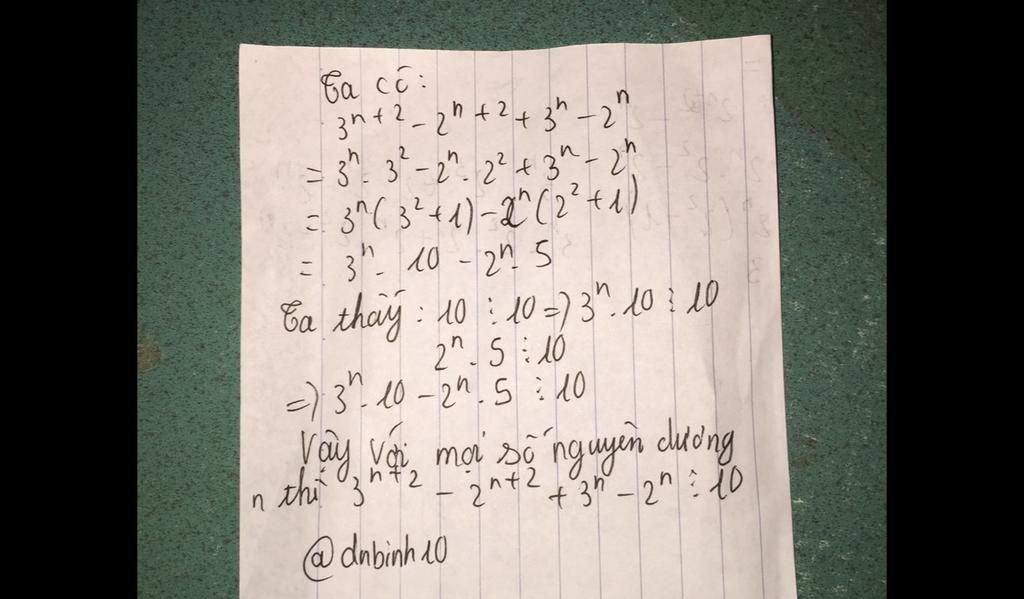 Ta có:
3^{n+2} - 2^{n+2} + 3^n - 2^n
= 3^n . 3^2 - 2^n . 2^2 + 3^n - 2^n
= 3^n (3^2 + 1) - 2^n (2^2 + 1)
= 3^n . 10 - 2^n . 5
Ta thấy : 10 ⋮ 10 => 3^n . 10 ⋮ 10
2^n . 5 ⋮ 10
=> 3^n . 10 - 2^n . 5 ⋮ 10
Vậy với mọi số nguyên dương
n thì 3^{n+2} - 2^{n+2} + 3^n - 2^n ⋮ 10
@dnbinh10